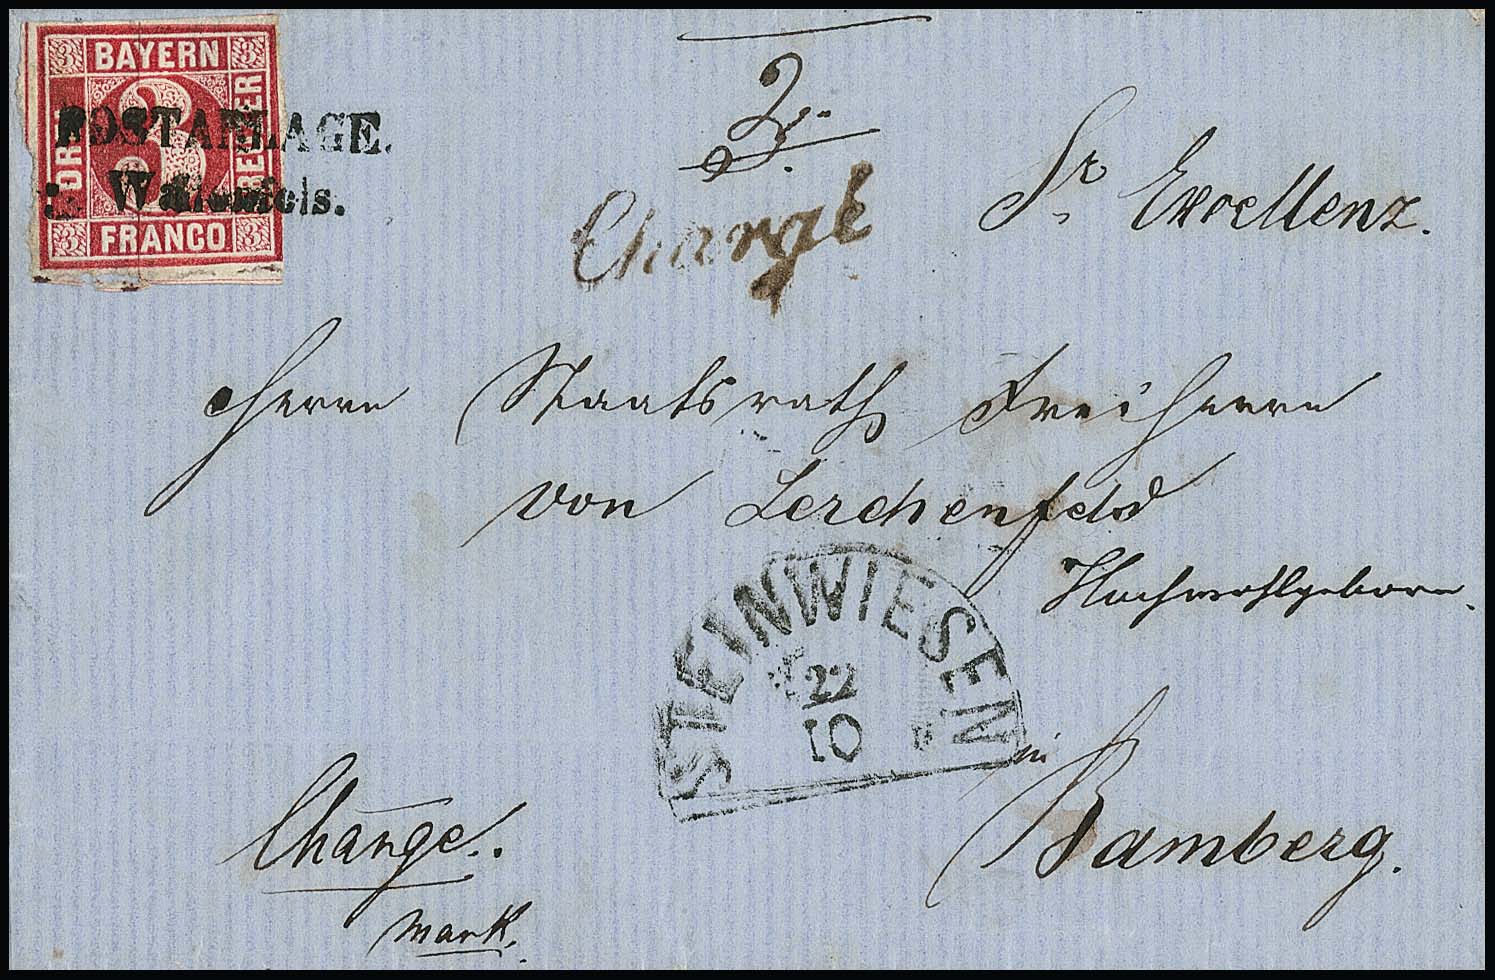 BAYERN
DREI
KREUZER
FRANCO
3
3
3
3
3
POSTABLAGE.
Wallenfels.
2
Chargé
Sr Excellenz.
Herrn Staatsrath Freiherrn
von Lerchenfeld
Hochwohlgeborn.
STEINWIESEN
22
10
in
Bamberg.
Change.
Mark.